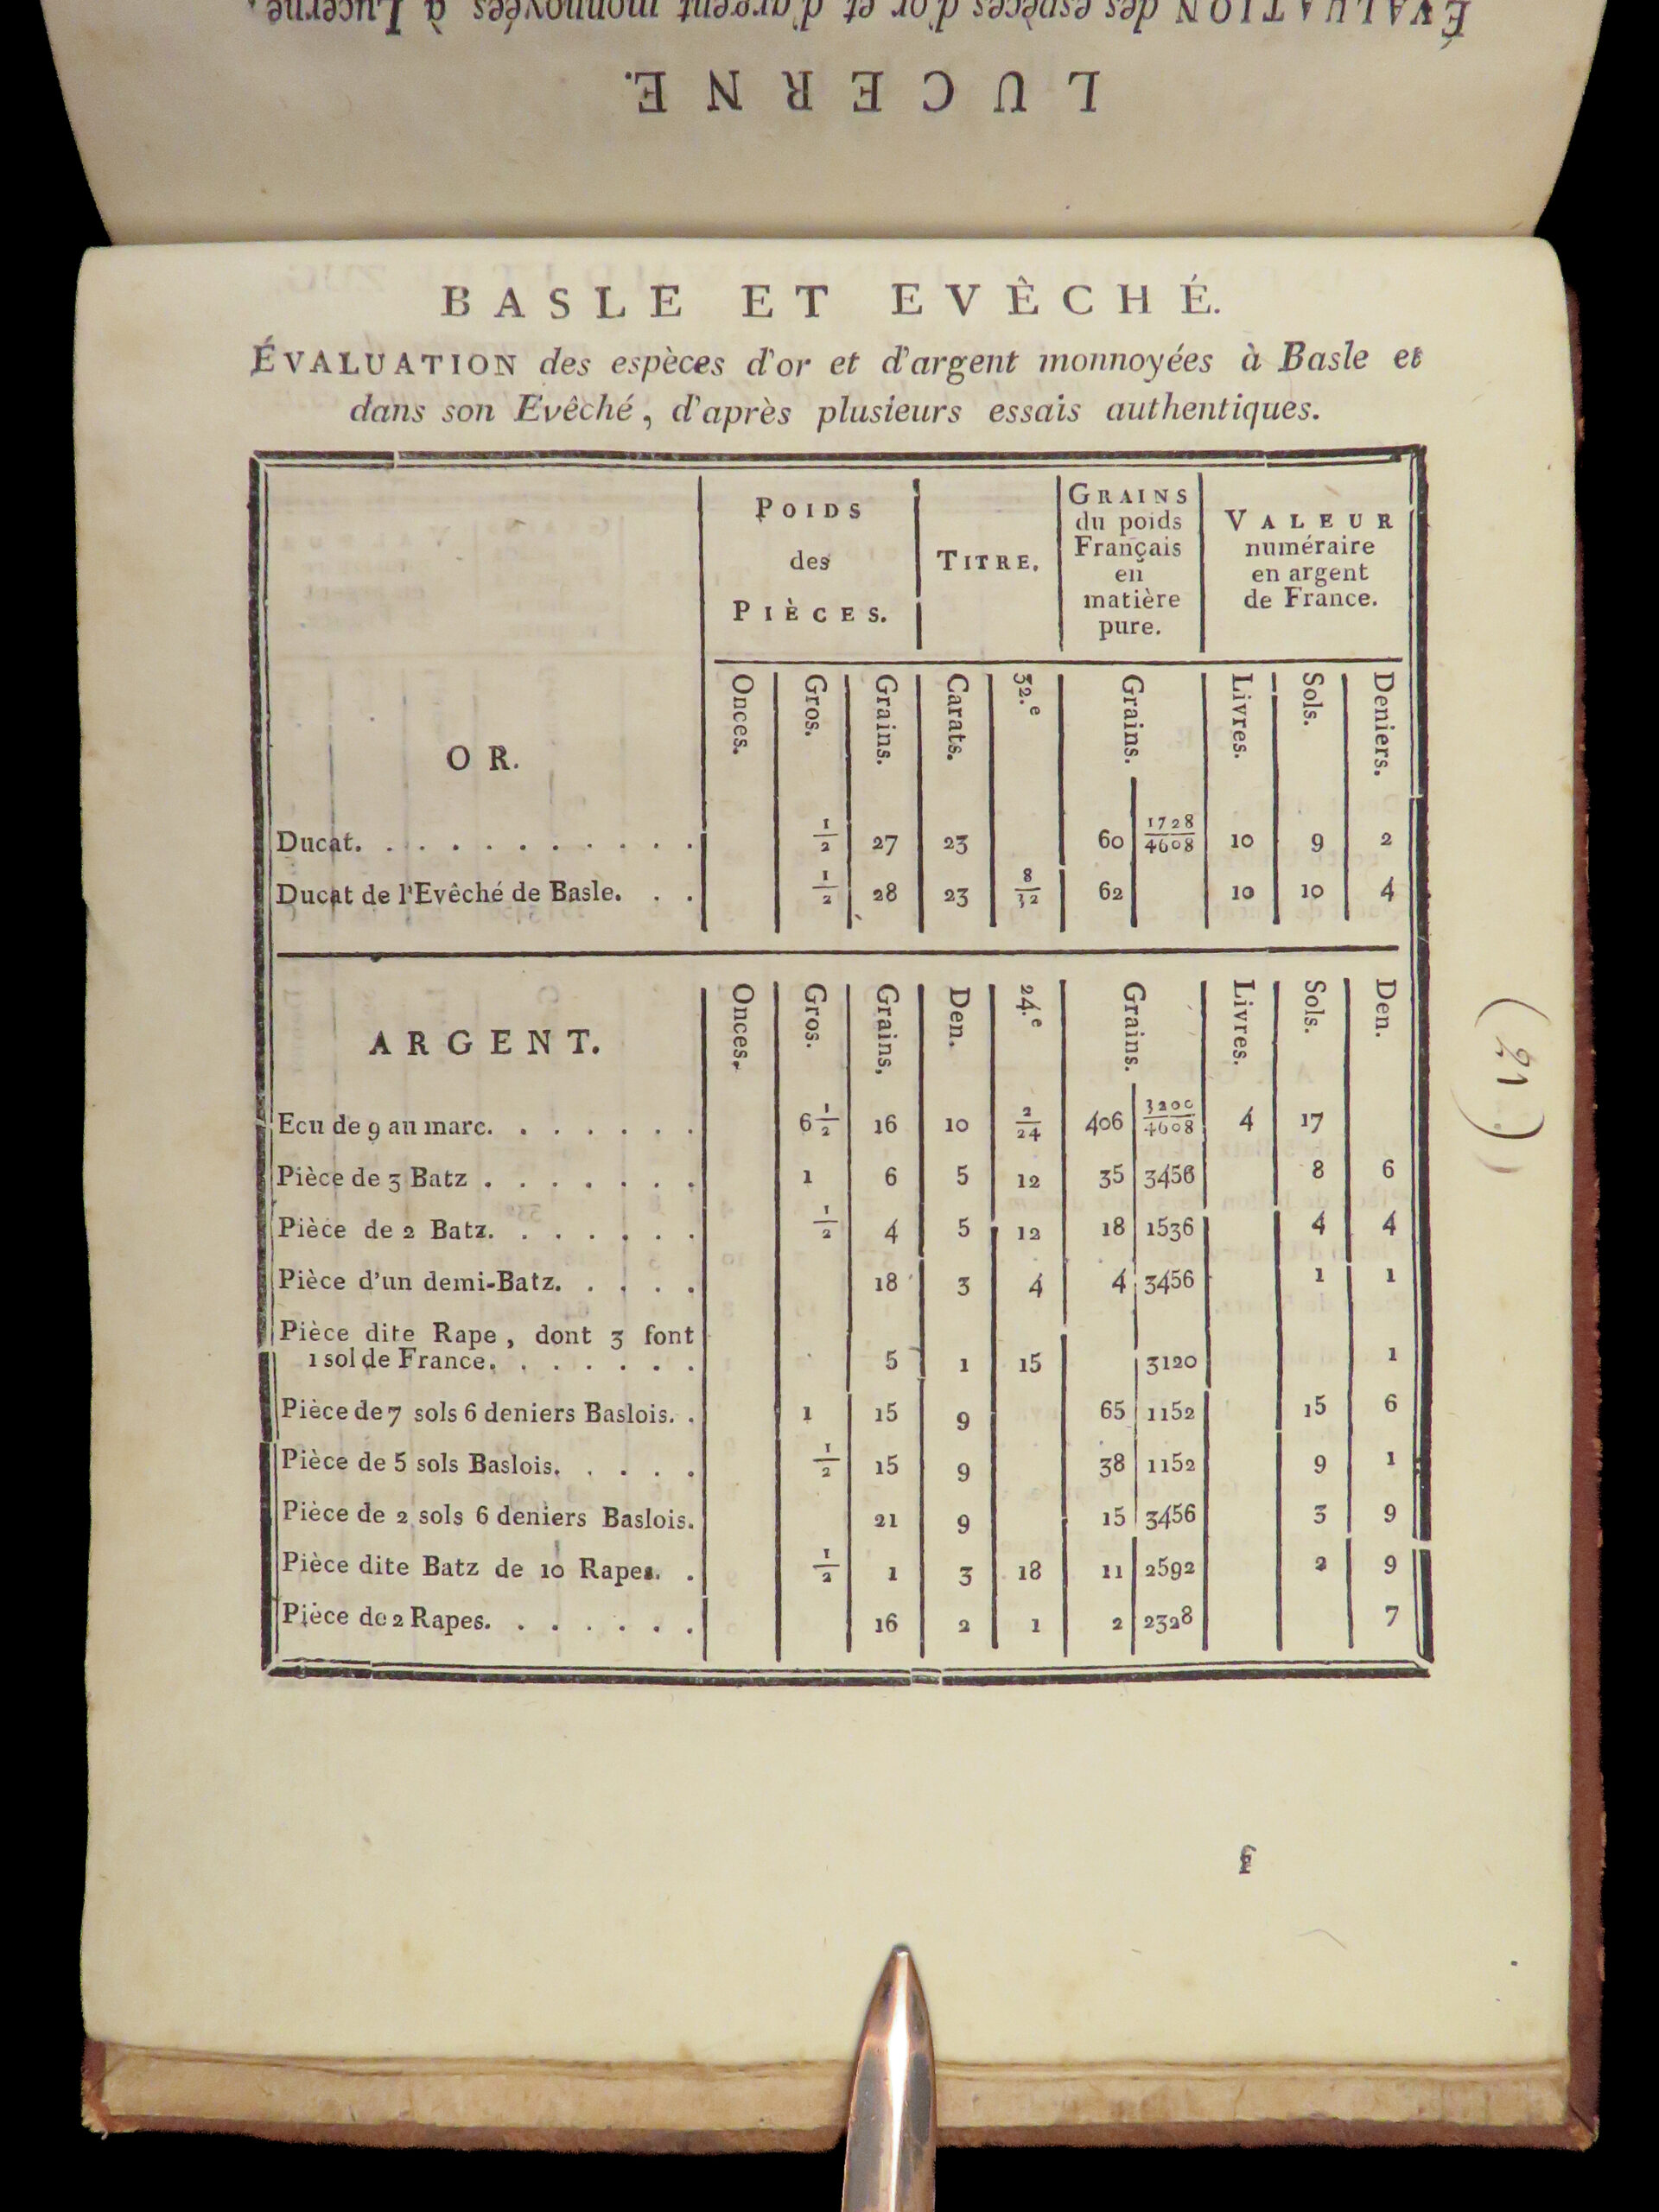 ÉVALUATION des espèces d'or et d'argent monnoyées à Lucerne,
LUCERNE.
BASLE ET EVÊCHÉ.
ÉVALUATION des espèces d'or et d'argent monnoyées à Basle et
dans son Evêché, d'après plusieurs essais authentiques.
POIDS des PIÈCES. TITRE. GRAINS du poids Français en matière pure. VALEUR numéraire en argent de France.
OR. Onces. Gros. Grains. Carats. 32.e Grains. Livres. Sols. Deniers.
Ducat. . . . . . . . . . . . 1/2 27 23 60 1728/4608 10 9 2
Ducat de l'Evêché de Basle. . . 1/2 28 23 8/32 62 10 10 4
ARGENT. Onces. Gros. Grains, Den. 24.e Grains. Livres. Sols. Den.
Ecu de 9 au marc. . . . . . . 6 1/2 16 10 2/24 406 3200/4608 4 17
Pièce de 3 Batz . . . . . . . 1 6 5 12 35 3456 8 6
Pièce de 2 Batz. . . . . . . 1/2 4 5 12 18 1536 4 4
Pièce d'un demi-Batz. . . . . 18 3 4 4 3456 1 1
Pièce dite Rape, dont 3 font
1 sol de France. . . . . . . 5 1 15 3120 1
Pièce de 7 sols 6 deniers Baslois. . 1 15 9 65 1152 15 6
Pièce de 5 sols Baslois. . . . . 1/2 15 9 38 1152 9 1
Pièce de 2 sols 6 deniers Baslois. 21 9 15 3456 3 9
Pièce dite Batz de 10 Rapes. . 1/2 1 3 18 11 2592 2 9
Pièce de 2 Rapes. . . . . . . 16 2 1 2 2328 7
(21)